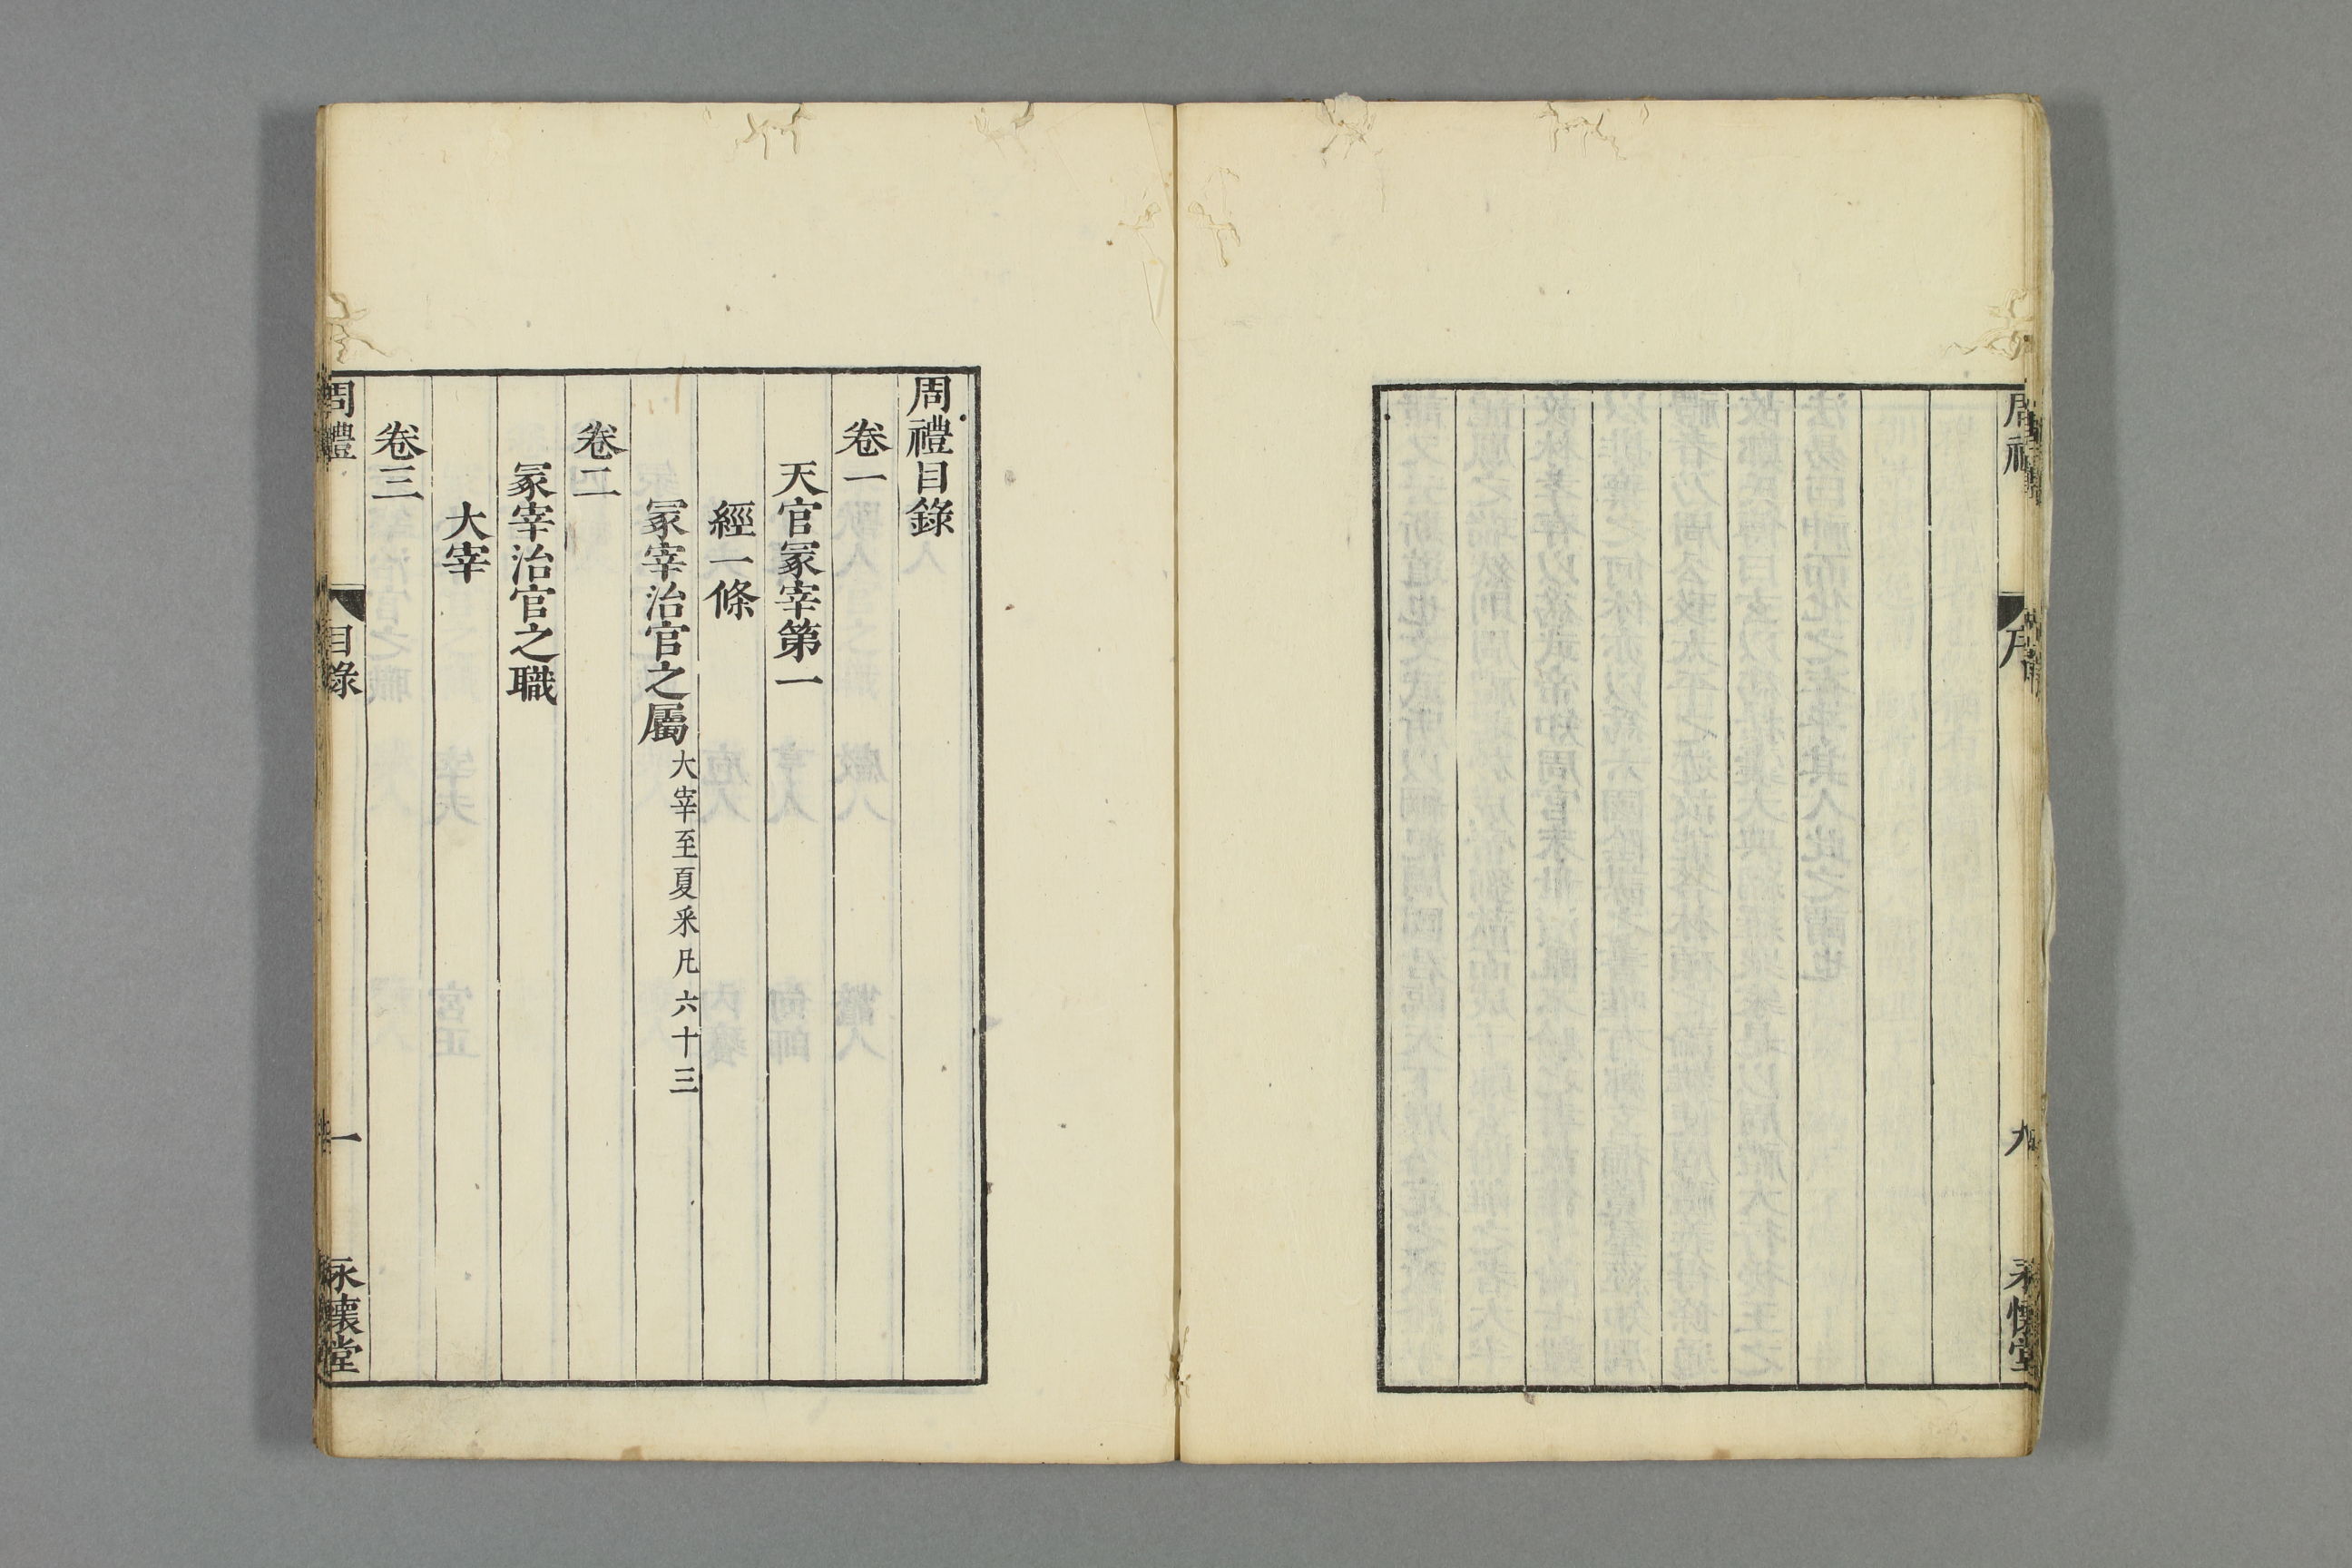 周禮
序
九
永懷堂
周禮目錄
卷一
天官冢宰第一
經一條
冢宰治官之屬大宰至夏采凡六十三
卷二
冢宰治官之職
大宰
卷三
周禮
目錄
一
永懷堂